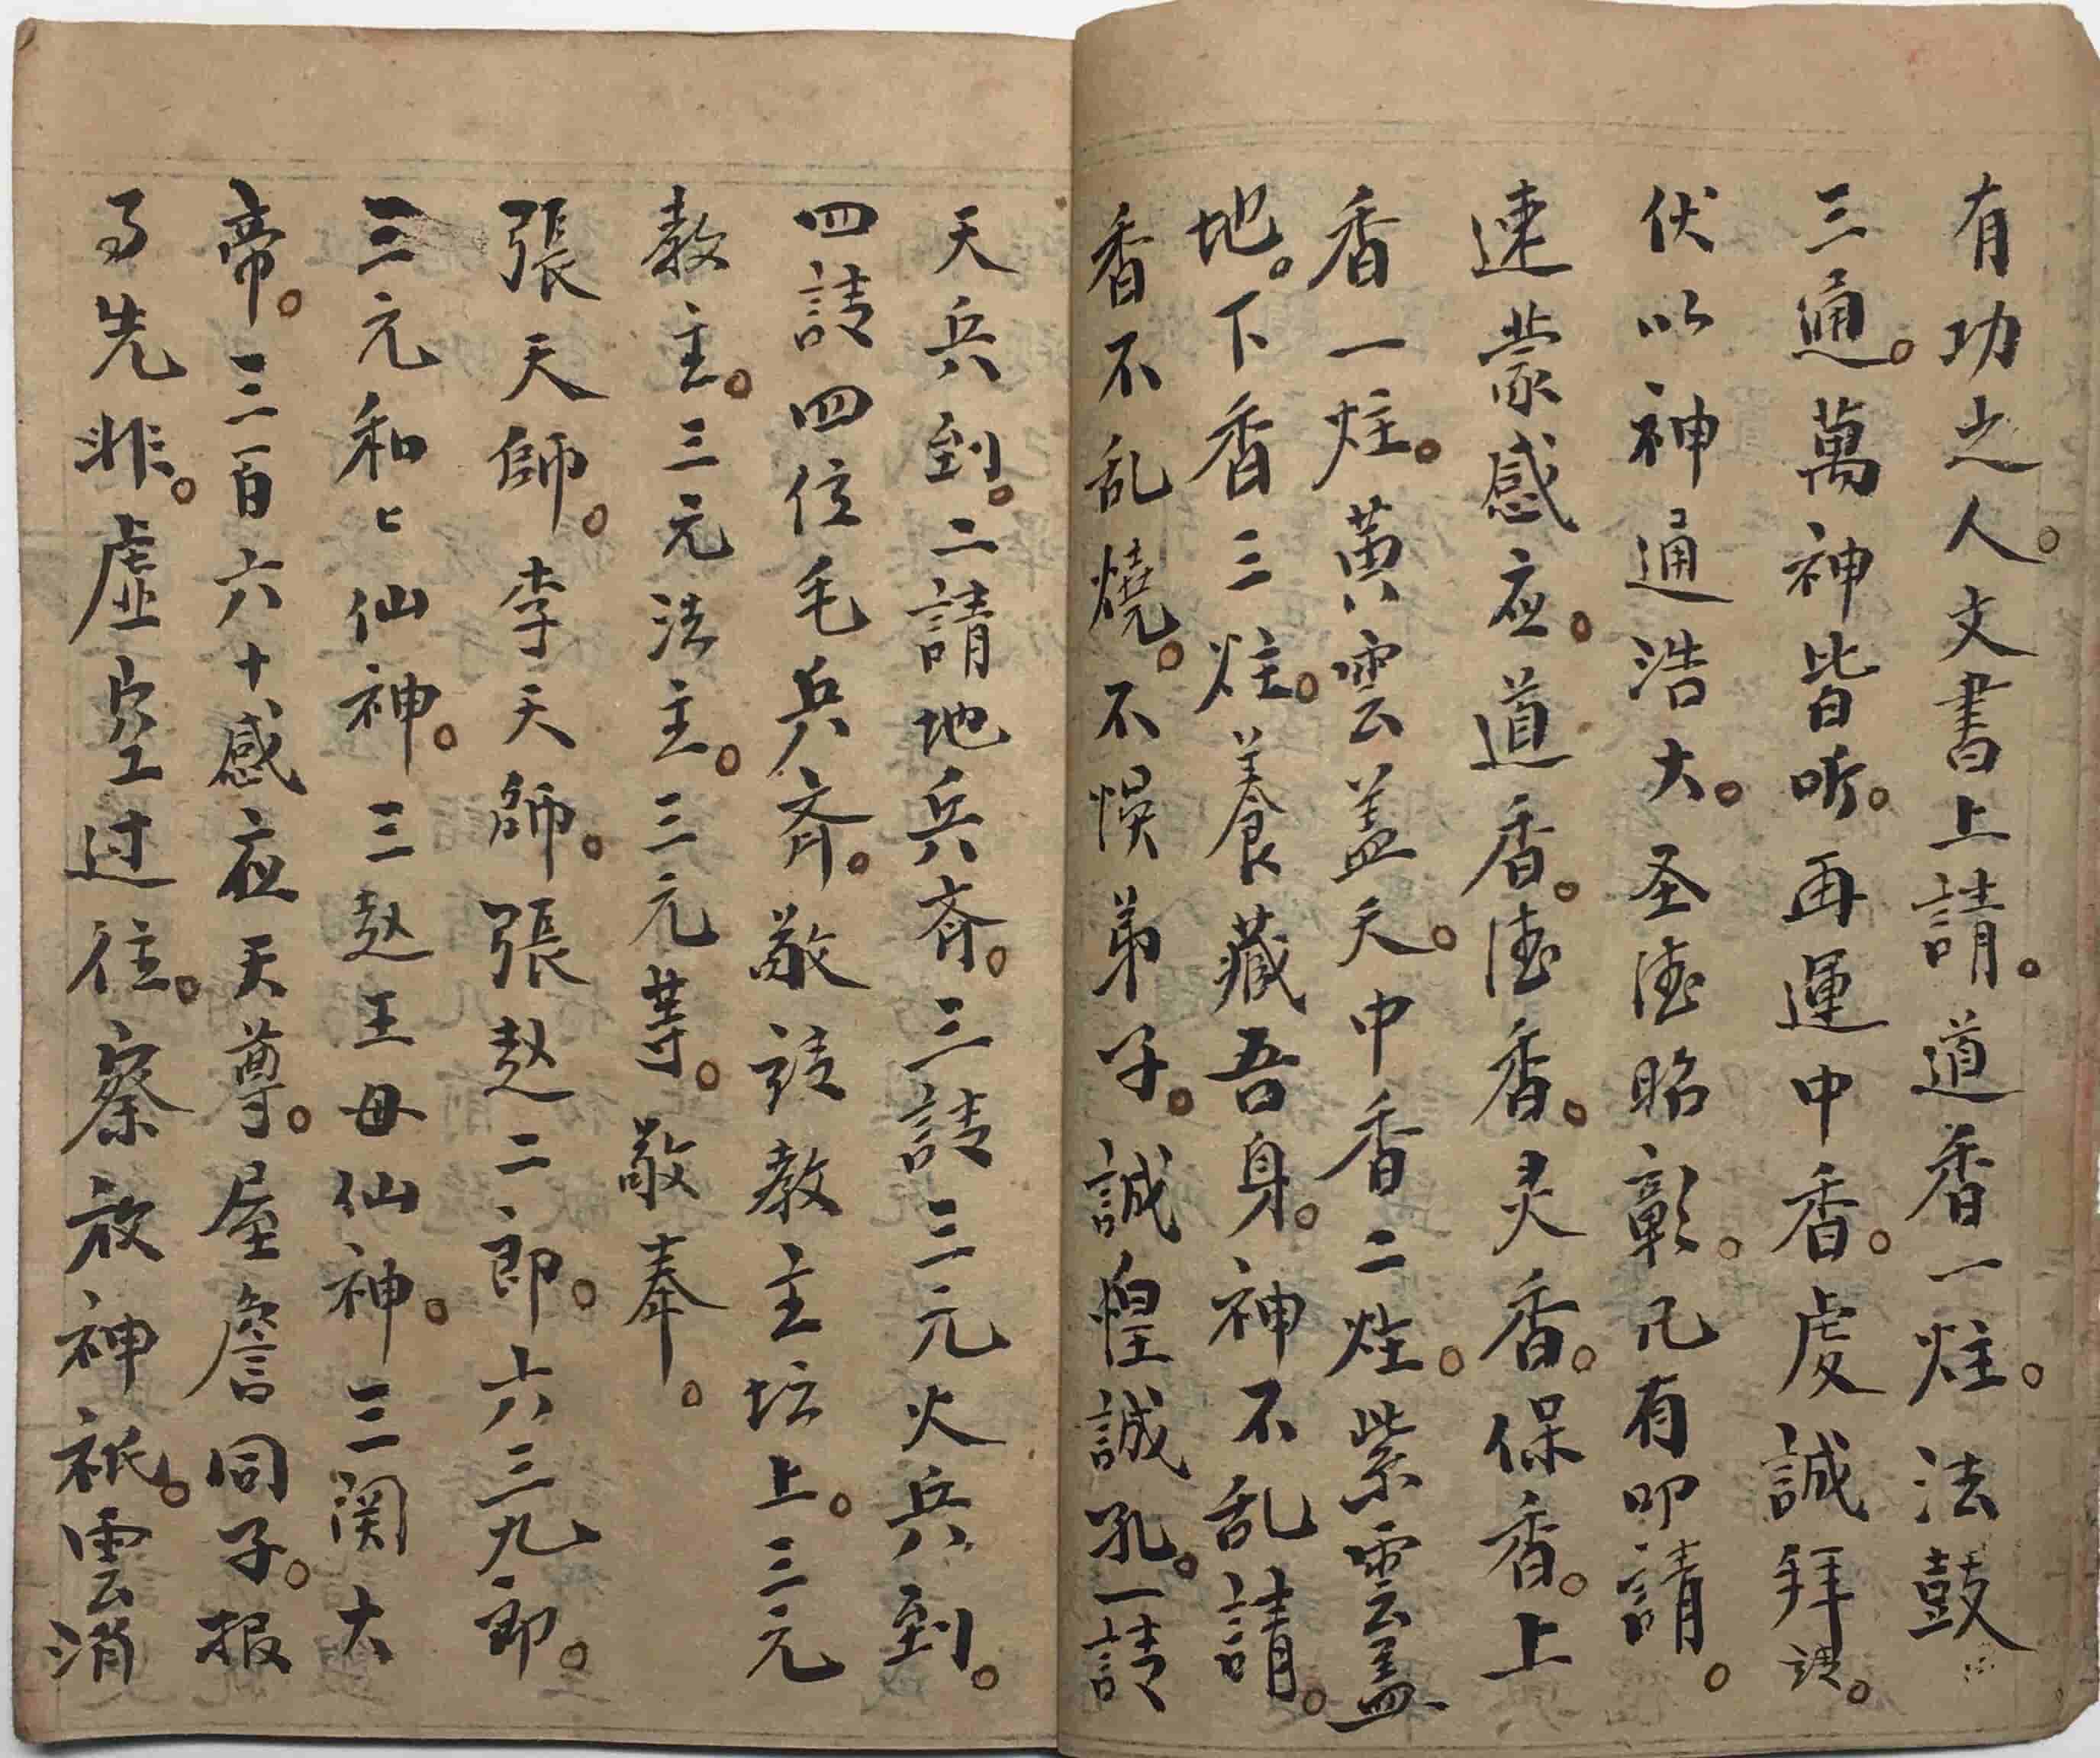 有功之人。文書上請。道香一炷。法鼓
三通。萬神皆听。再運中香。虔誠拜請。
伏以神通浩大。圣德昭彰。凡有叩請。
速蒙感应。道香。德香。灵香。保香。上
香一炷。黄雲盖天。中香二炷。紫雲盖
地。下香三炷。養藏吾身。神不乱請。
香不乱燒。不悞弟子。誠惶誠孔。一請
天兵到。二請地兵斉。三請三元火兵到。
四請四位毛兵斉。敬請教主坛上。三元
教主。三元法主。三元等。敬奉。
張天師。李天師。張赵二郎。六三九郎。
三元和〻仙神。三赵王母仙神。三関大
帝。三百六十感应天尊。屋詹同子。报
事先非。虚空过往。察放神祇。雲消